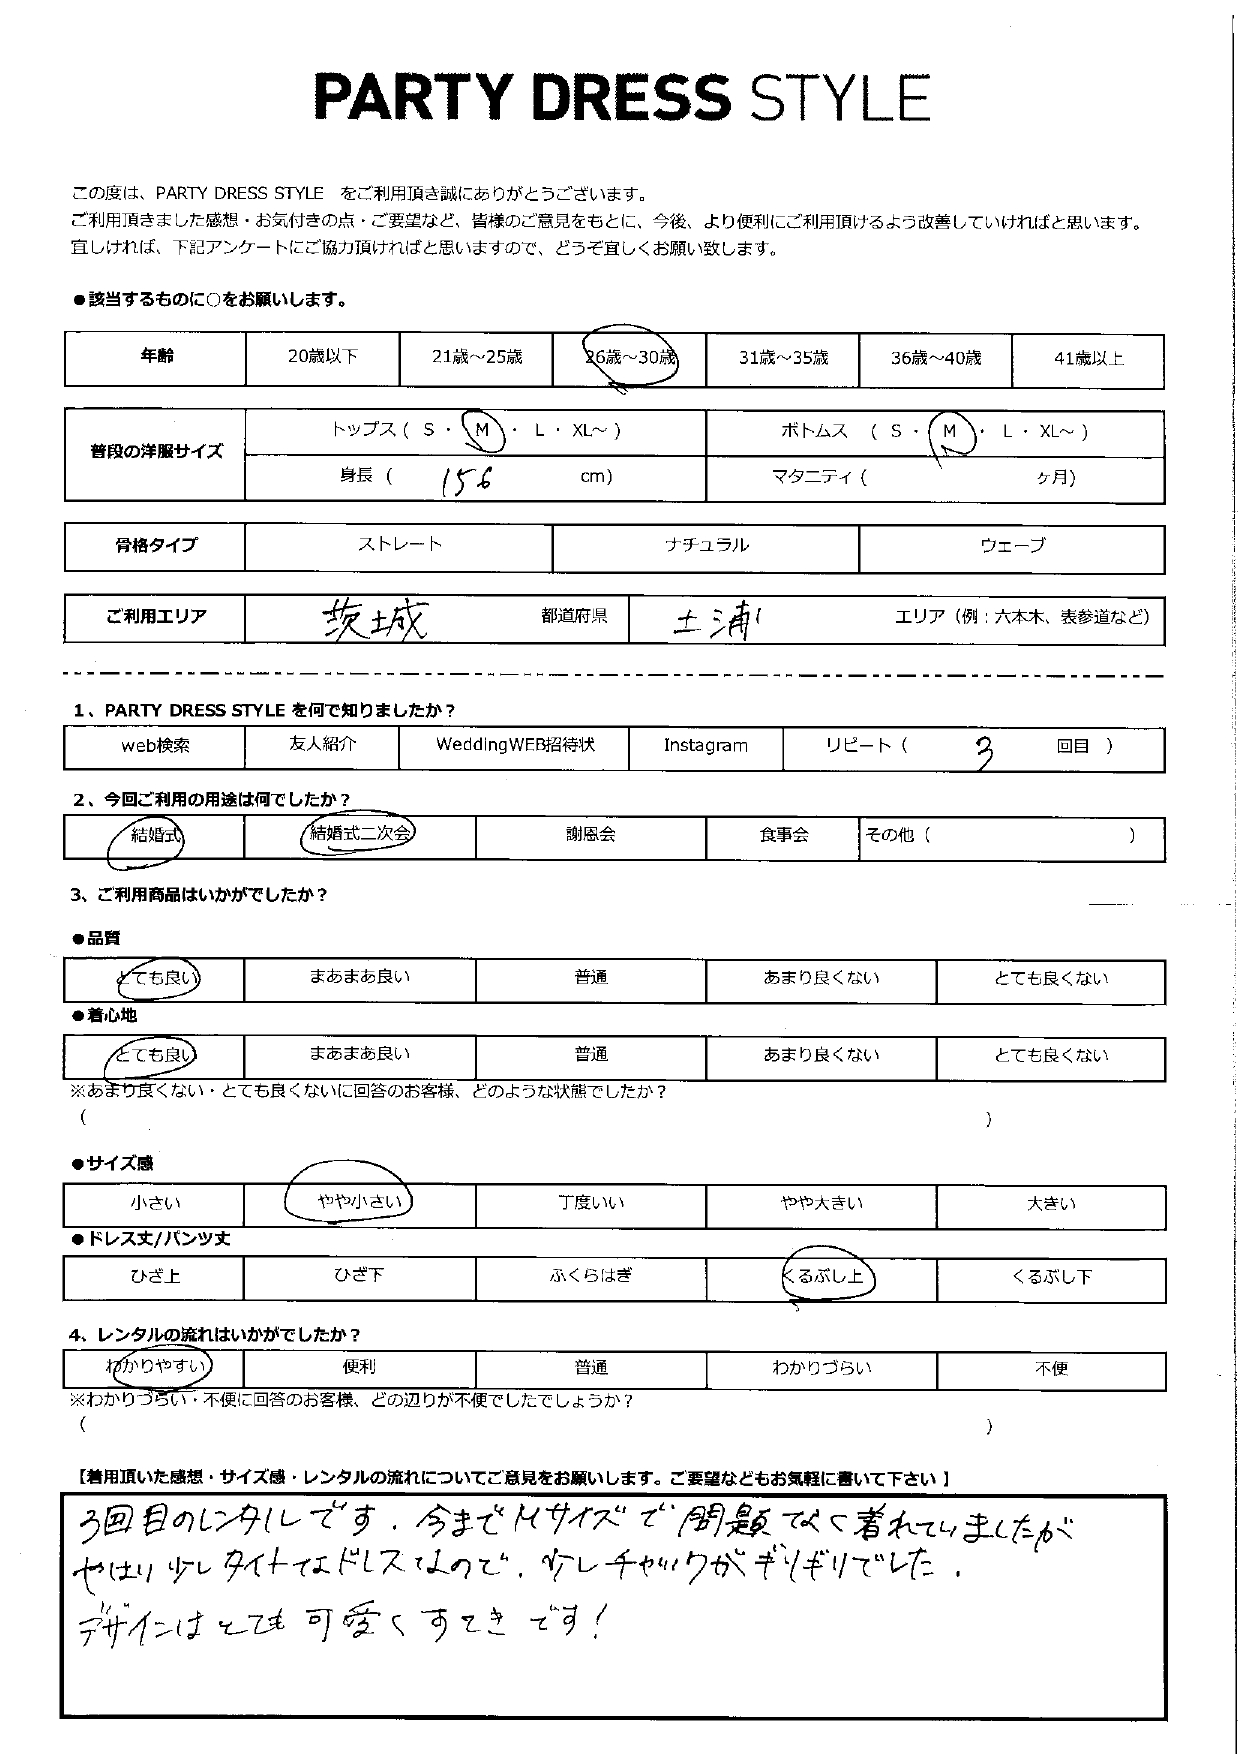 PARTY DRESS STYLE
この度は、PARTY DRESS STYLE をご利用頂き誠にありがとうございます。
ご利用頂きました感想・お気付きの点・ご要望など、皆様のご意見をもとに、今後、より便利にご利用頂けるよう改善していければと思います。
宜しければ、下記アンケートにご協力頂ければと思いますので、どうぞ宜しくお願い致します。
●該当するものに○をお願いします。
年齢 20歳以下 21歳～25歳 26歳～30歳 31歳～35歳 36歳～40歳 41歳以上
普段の洋服サイズ トップス ( S ・ M ・ L ・ XL～ ) ボトムス ( S ・ M ・ L ・ XL～ )
身長 ( 156 cm) マタニティ ( ヶ月)
骨格タイプ ストレート ナチュラル ウェーブ
ご利用エリア 茨城 都道府県 土浦 エリア（例：六本木、表参道など）
1、PARTY DRESS STYLE を何で知りましたか？
web検索 友人紹介 WeddingWEB招待状 Instagram リピート ( 3 回目 )
2、今回ご利用の用途は何でしたか？
結婚式 結婚式二次会 謝恩会 食事会 その他 ( )
3、ご利用商品はいかがでしたか？
●品質
とても良い まあまあ良い 普通 あまり良くない とても良くない
●着心地
とても良い まあまあ良い 普通 あまり良くない とても良くない
※あまり良くない・とても良くないに回答のお客様、どのような状態でしたか？
( )
●サイズ感
小さい やや小さい 丁度いい やや大きい 大きい
●ドレス丈/パンツ丈
ひざ上 ひざ下 ふくらはぎ くるぶし上 くるぶし下
4、レンタルの流れはいかがでしたか？
わかりやすい 便利 普通 わかりづらい 不便
※わかりづらい・不便に回答のお客様、どの辺りが不便でしたでしょうか？
( )
【着用頂いた感想・サイズ感・レンタルの流れについてご意見をお願いします。ご要望などもお気軽に書いて下さい 】
3回目のレンタルです. 今までMサイズで問題なく着れていましたが
やはり少しタイトなドレスなので. 少しチャックがギリギリでした.
デザインはとても可愛くすてきです！